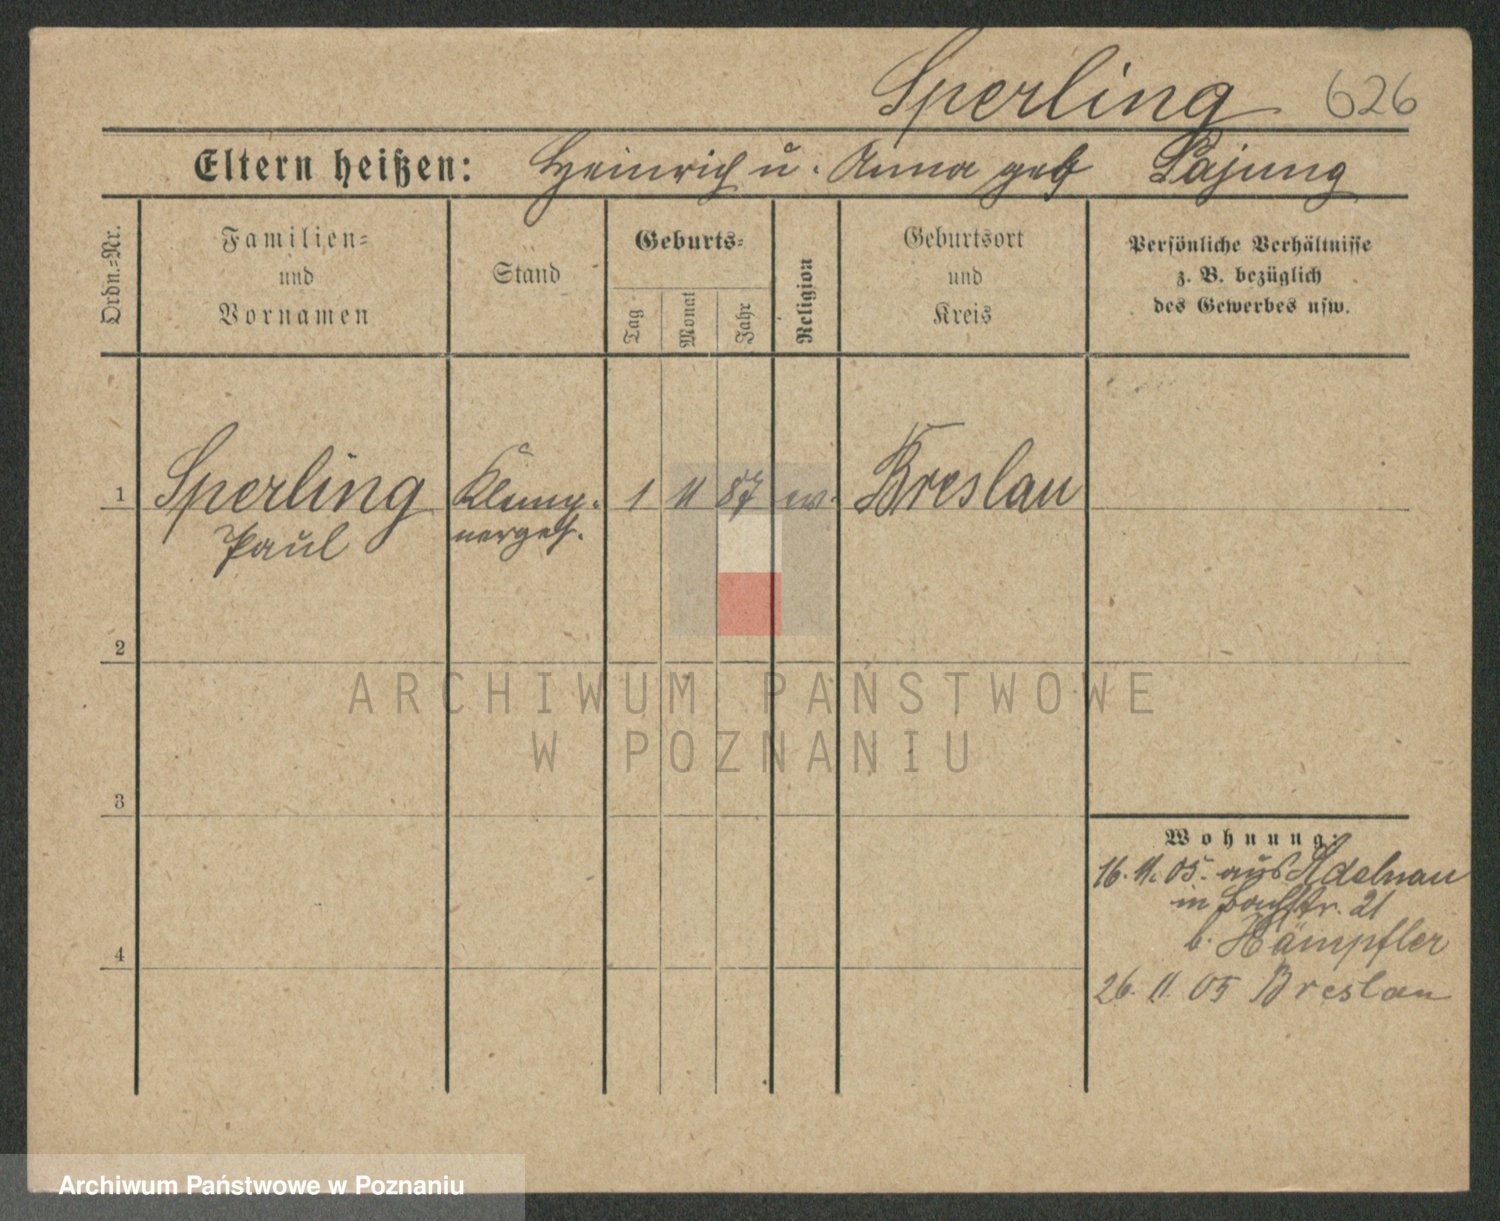 Sperling 626
Eltern heißen: Heinrich u. Anna geb Lajung
Ordn.-Nr.
Familien-
und
Vornamen
Stand
Geburts-
Tag
Monat
Jahr
Religion
Geburtsort
und
Kreis
Persönliche Verhältnisse
z. B. bezüglich
des Gewerbes usw.
1 Sperling Klemp- 1 11 87 ev. Breslau
Paul nerges.
2
ARCHIWUM PAŃSTWOWE
W POZNANIU
3
Wohnung:
16. 11. 05. aus Adelnau
in Bachstr. 21
b. Kämpfler
4
26. 11 05 Breslau
Archiwum Państwowe w Poznaniu